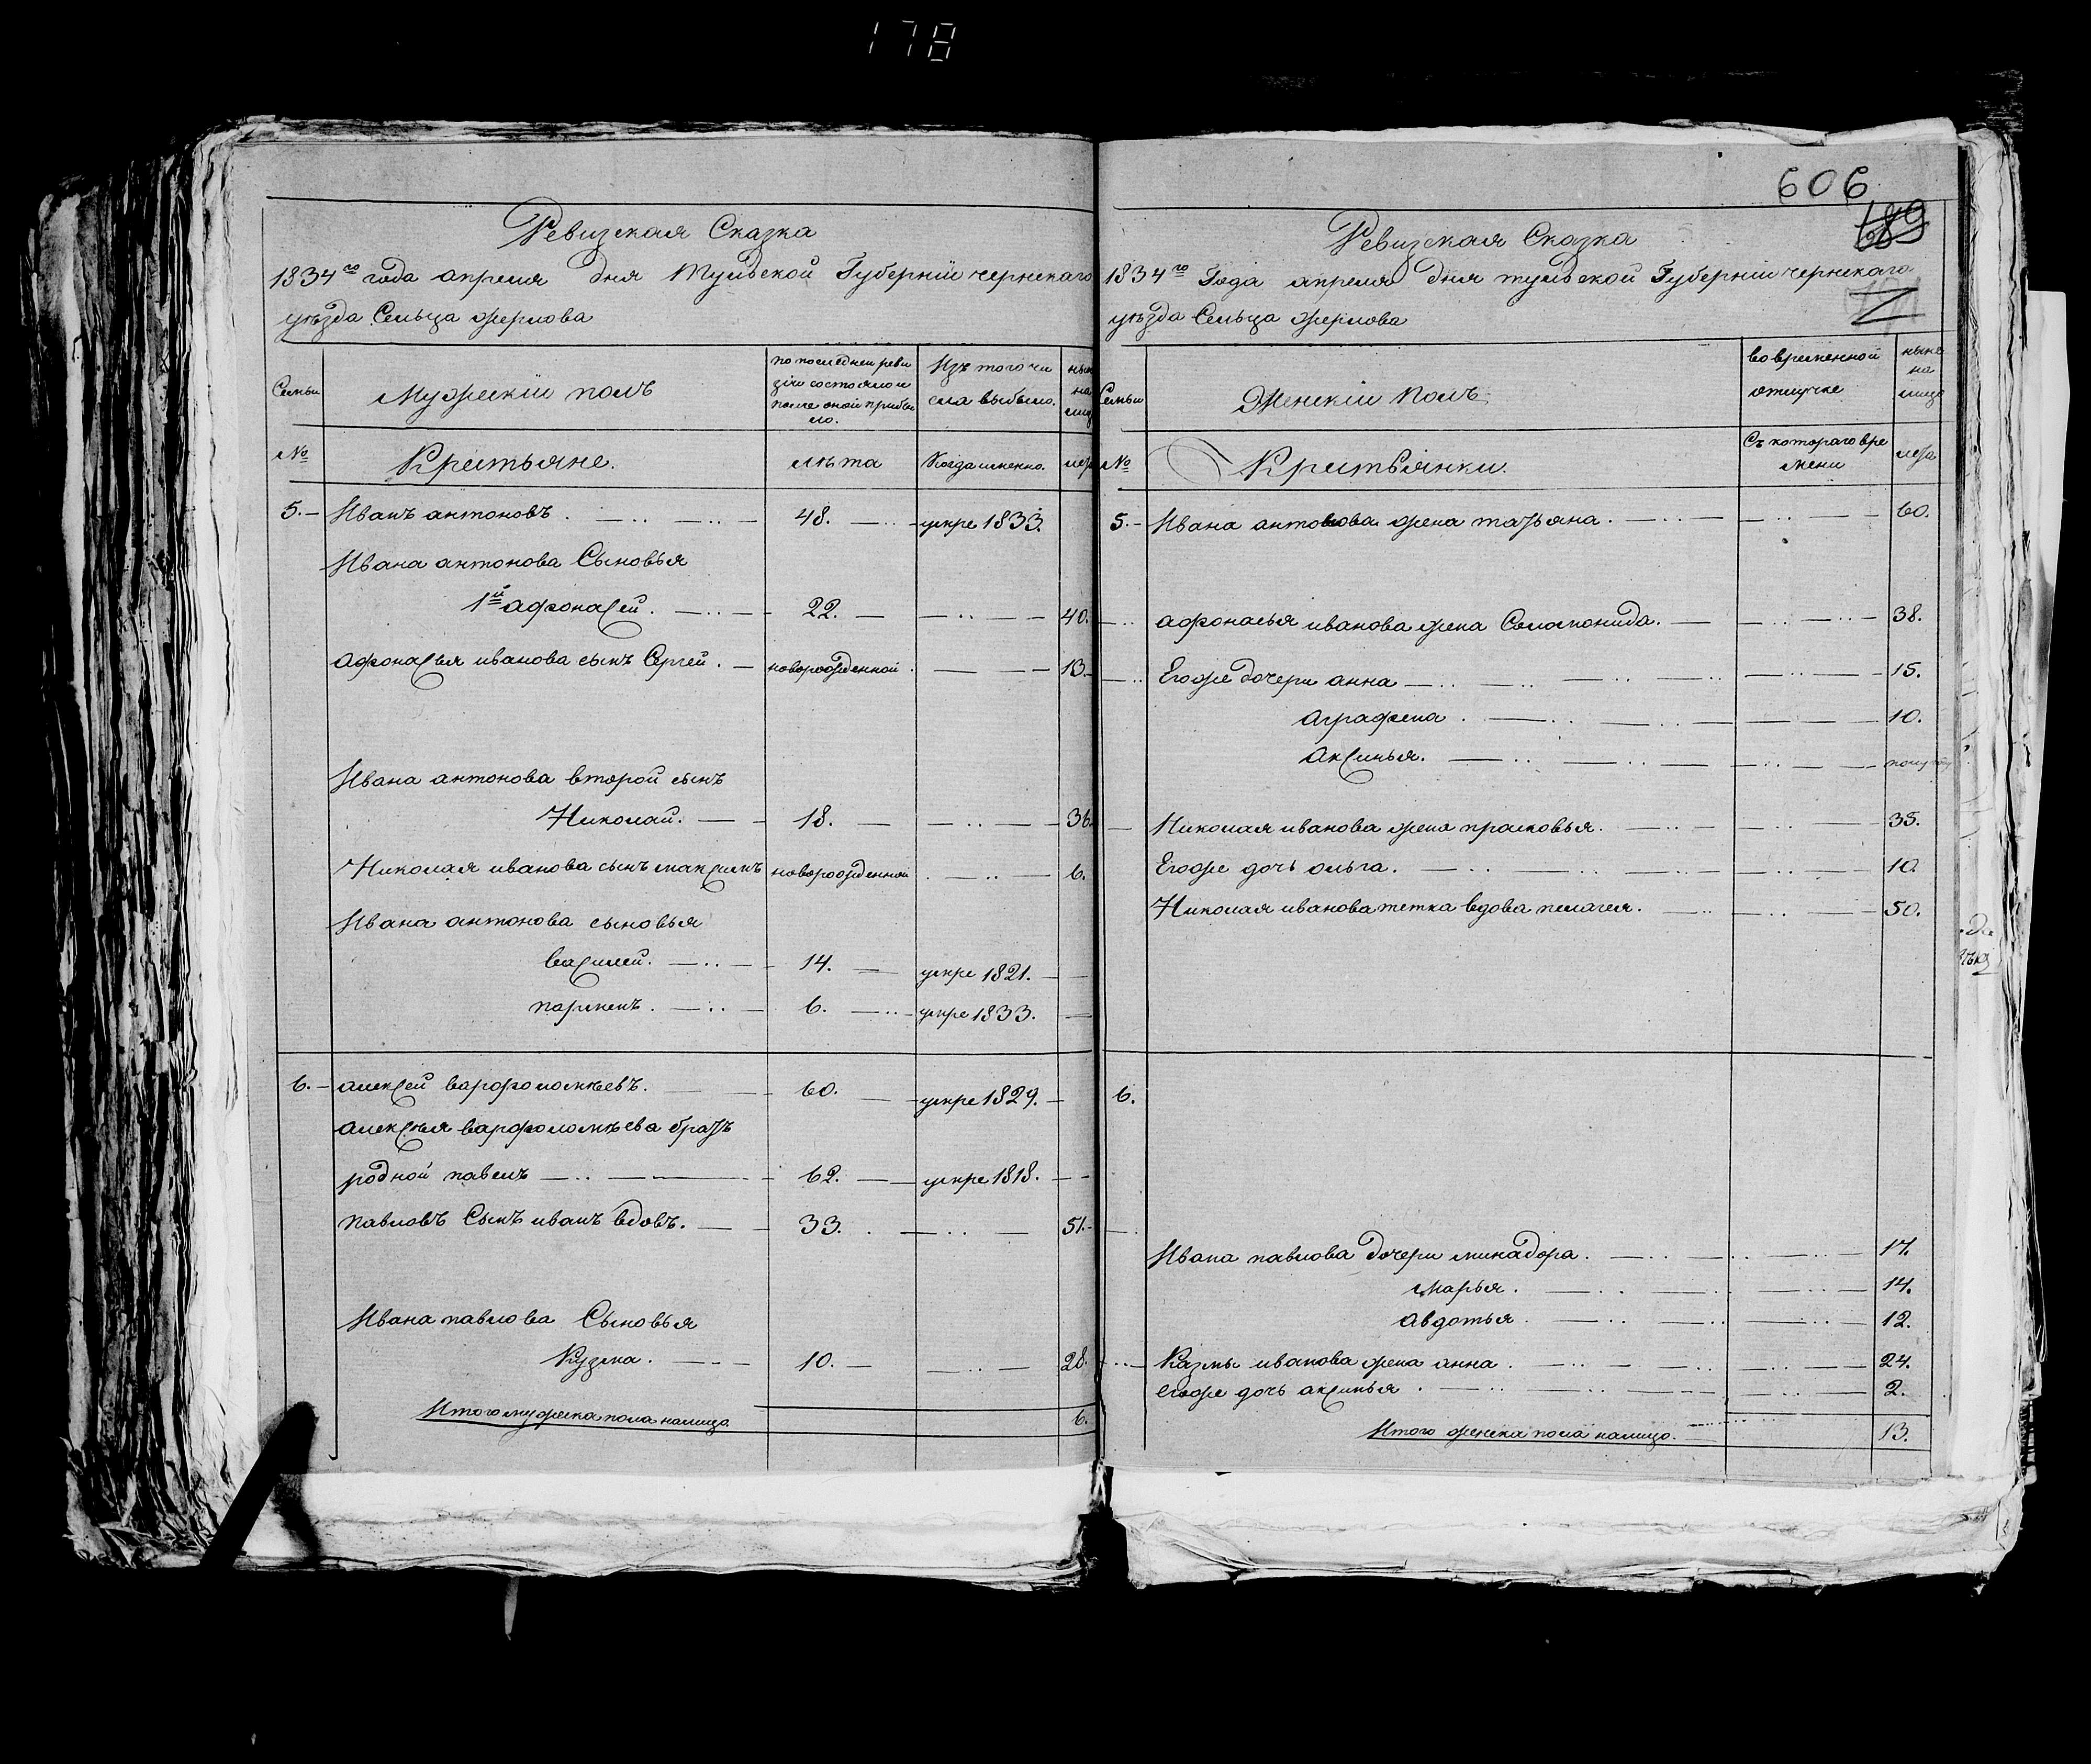 178
Ревизская Сказка
1834го года апреля дня Тульской Губернiи чернскаго
уѣзда Сельца жерлова
Семьи
Мужескiй полъ
по последней реви
зiи состояло и
после оной прибы
ло.
Изъ того чи
сла выбыло.
№
Крестьяне.
лѣта
Когда именно.
5. Иванъ антоновъ. 48. умре 1833.
Ивана антонова Сыновья
1й афонасей. 22. 40.
афонасья иванова сынъ Сергей. новорожденной. 13.
Ивана антонова второй сынъ
Николай. 18. 36.
Николая иванова сынъ максимъ новорожденной. 6.
Ивана антонова сыновья
василей. 14. умре 1821.
парменъ. 6. умре 1833.
6. алексей варфоломѣевъ. 60. умре 1829.
алексѣя варфоломѣева братъ
родной павелъ 62. умре 1818.
павловъ Сынъ иванъ вдовъ. 33. 51.
Ивана павлова Сыновья
Кузма. 10. 28.
Итого мужеска пола налицо 6.
606
689
Ревизская Сказка
1834го Года апреля дня тульской Губернiи чернскаго
уѣзда Сельца жерлова
Семьи
Женскiй Полъ
во временной
отлучке
ныне
на
лицо
№
Крестьянки.
Съ котораго вре
мени
лета
5. Ивана антонова жена татьяна. 60.
афонасья иванова жена Соломонида. 38.
Егоже дочери анна 15.
аграфена. 10.
аксинья.
Николая иванова жена прасковья. 35.
Егоже дочь ольга. 10.
Николая иванова тетка вдова пелагея. 50.
6.
Ивана павлова дочери минадора. 17.
Марья. 14.
авдотья. 12.
Казмы иванова жена анна. 24.
егоже дочь аксинья. 2.
Итого женска пола налицо. 13.